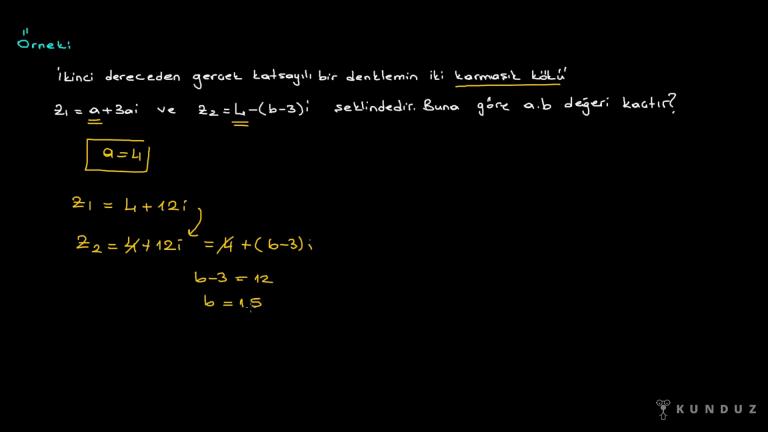 Örnek:
İkinci dereceden gerçek katsayılı bir denklemin iki karmaşık kökü
z₁ = a+3ai ve z₂ = 4-(b-3)i şeklindedir. Buna göre a.b değeri kaçtır?
a=4
z₁ = 4+12i
z₂ = 4+12i = 4+(b-3)i
b-3 = 12
b = 15
KUNDUZ